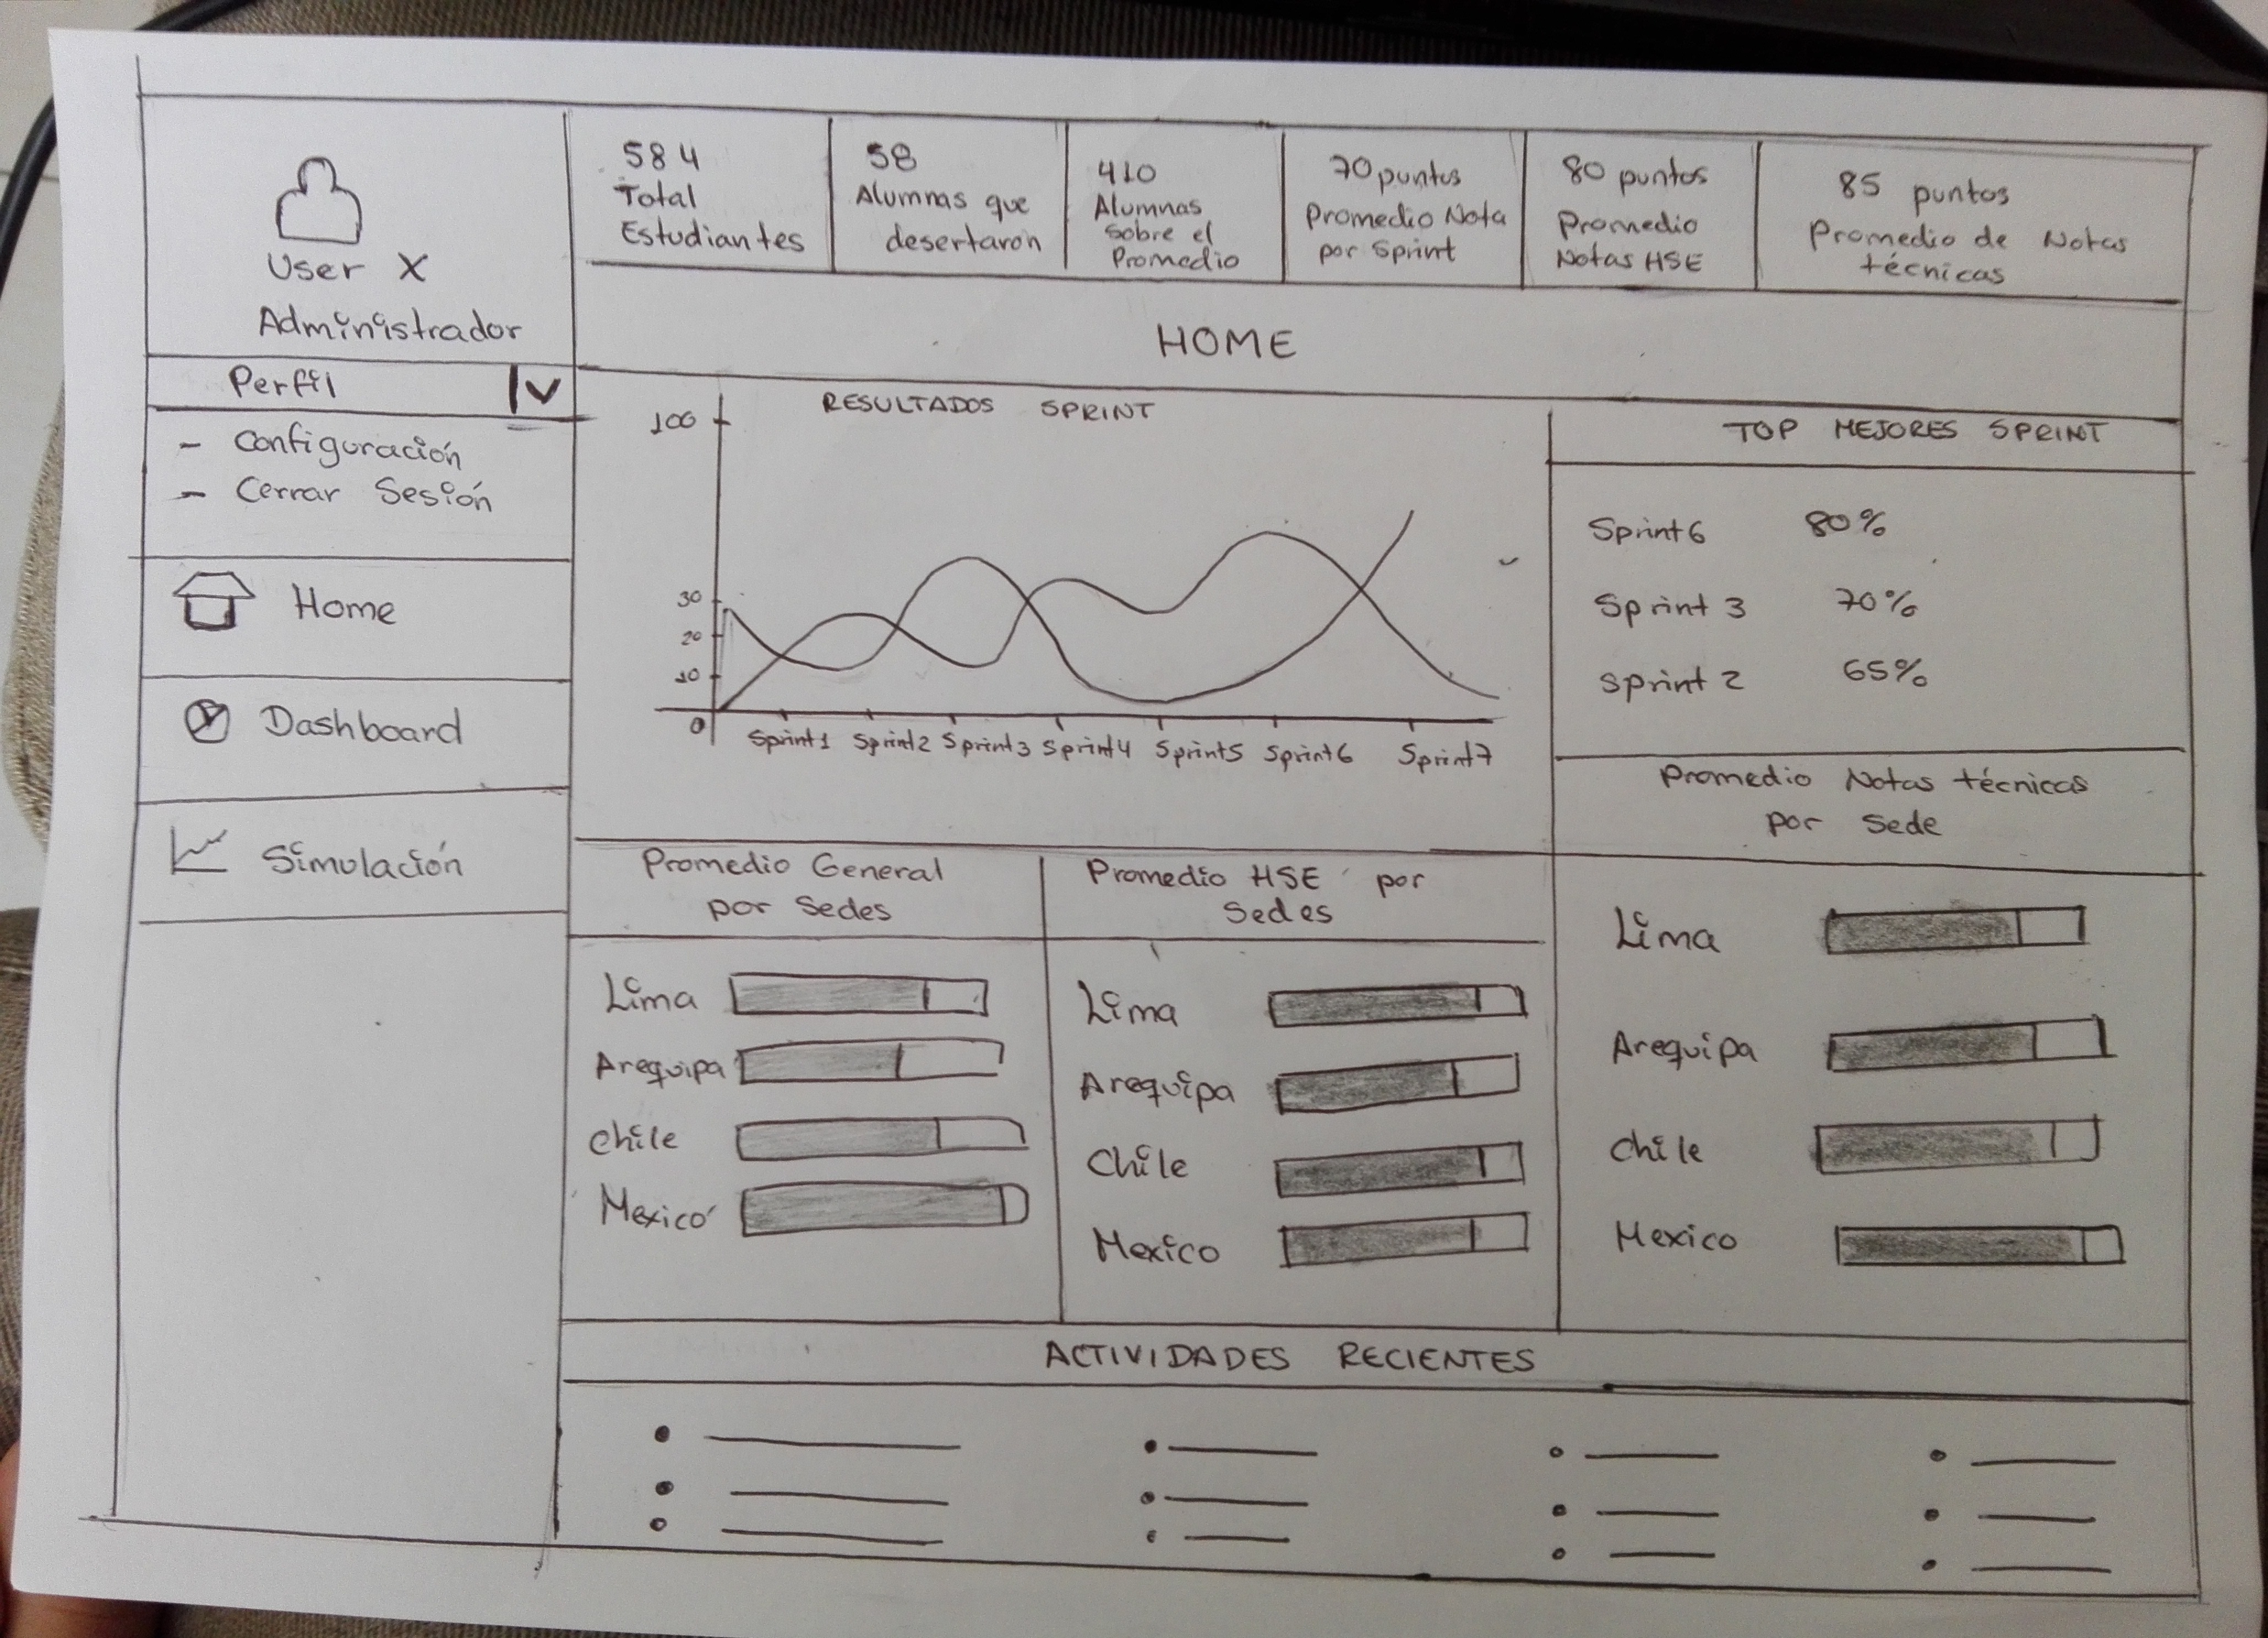 User X
Administrador
Perfil
- Configuración
- Cerrar Sesión
Home
Dashboard
Simulación
584
Total
Estudiantes
58
Alumnas que
desertaron
410
Alumnas
sobre el
Promedio
70 puntos
Promedio Nota
por Sprint
80 puntos
Promedio
Notas HSE
85 puntos
Promedio de Notas
técnicas
HOME
RESULTADOS SPRINT
100
30
20
10
0
Sprint1 Sprint2 Sprint3 Sprint4 Sprint5 Sprint6 Sprint7
TOP MEJORES SPRINT
Sprint6 80%
Sprint 3 70%
Sprint 2 65%
Promedio General
por Sedes
Lima
Arequipa
Chile
Mexico
Promedio HSE por
Sedes
Lima
Arequipa
Chile
Mexico
Promedio Notas técnicas
por Sede
Lima
Arequipa
Chile
Mexico
ACTIVIDADES RECIENTES